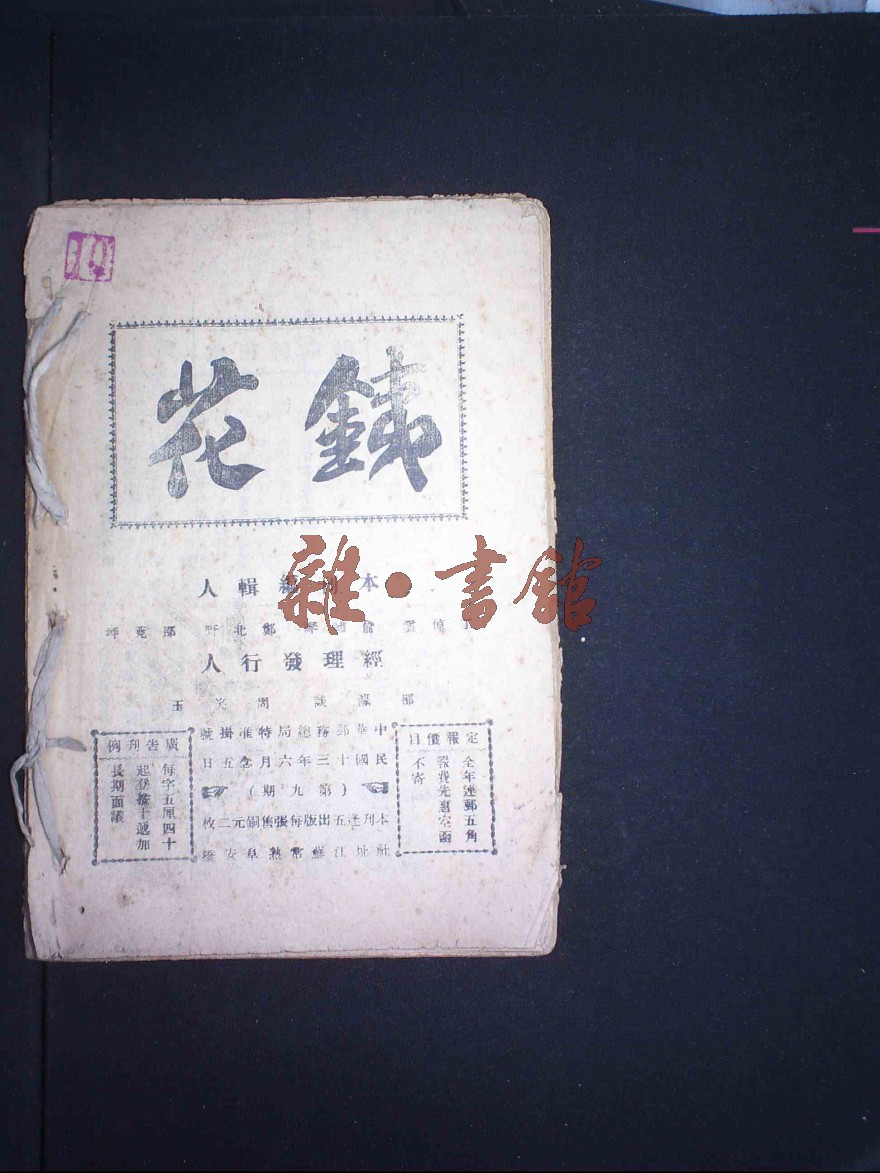 鐵花
本刊編輯人
鄭北野
經理發行人
周笑玉
定報價目
全年連郵五角
報費先惠空函
不寄
中華郵務總局特准掛號
民國十三年六月念五日
(第九期)
本刊逢五出版每張售銅元三枚
社址江蘇常熟阜安橋
廣告刊例
每字五厘四十
起登按十遞加
長期面議
雜·書館